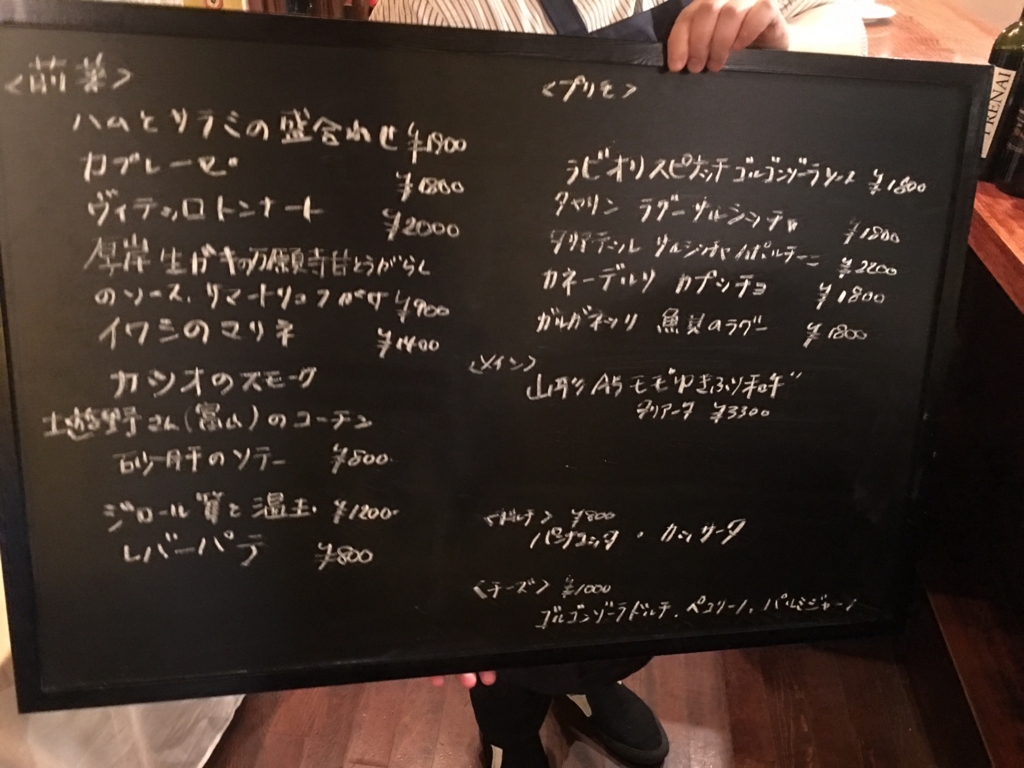 <前菜>
ハムとサラミの盛合わせ ¥1800
カプレーゼ ¥1800
ヴィテッロトンナート ¥2000
厚岸生ガキの万願寺甘とうがらし
のソース、リマートリュフがけ ¥900
イワシのマリネ ¥1400
カツオのスモーク
土遊野さん(富山)のコーチン
砂肝のソテー ¥800
ジロール茸と温玉 ¥1200
レバーパテ ¥800
<プリモ>
ラビオリスピナッチゴルゴンゾーラソース ¥1800
タヤリン ラグーサルシッチャ ¥1800
タリアテッレ サルシッチャ ポルチーニ ¥2200
カネーデルリ カプッチョ ¥1800
ガルガネッリ 魚貝のラグー ¥1800
<メイン>
山形A5モモゆきふり和牛
タリアータ ¥3300
<ドルチェ> ¥800
パンナコッタ・カッサータ
<チーズ> ¥1000
ゴルゴンゾーラドルチェ、ペコリーノ、パルミジャーノ
TRENAI